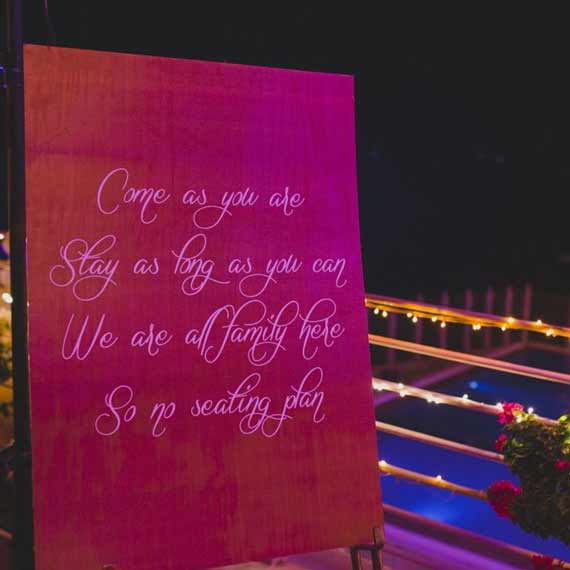 Come as you are
Stay as long as you can
We are all family here
So no seating plan